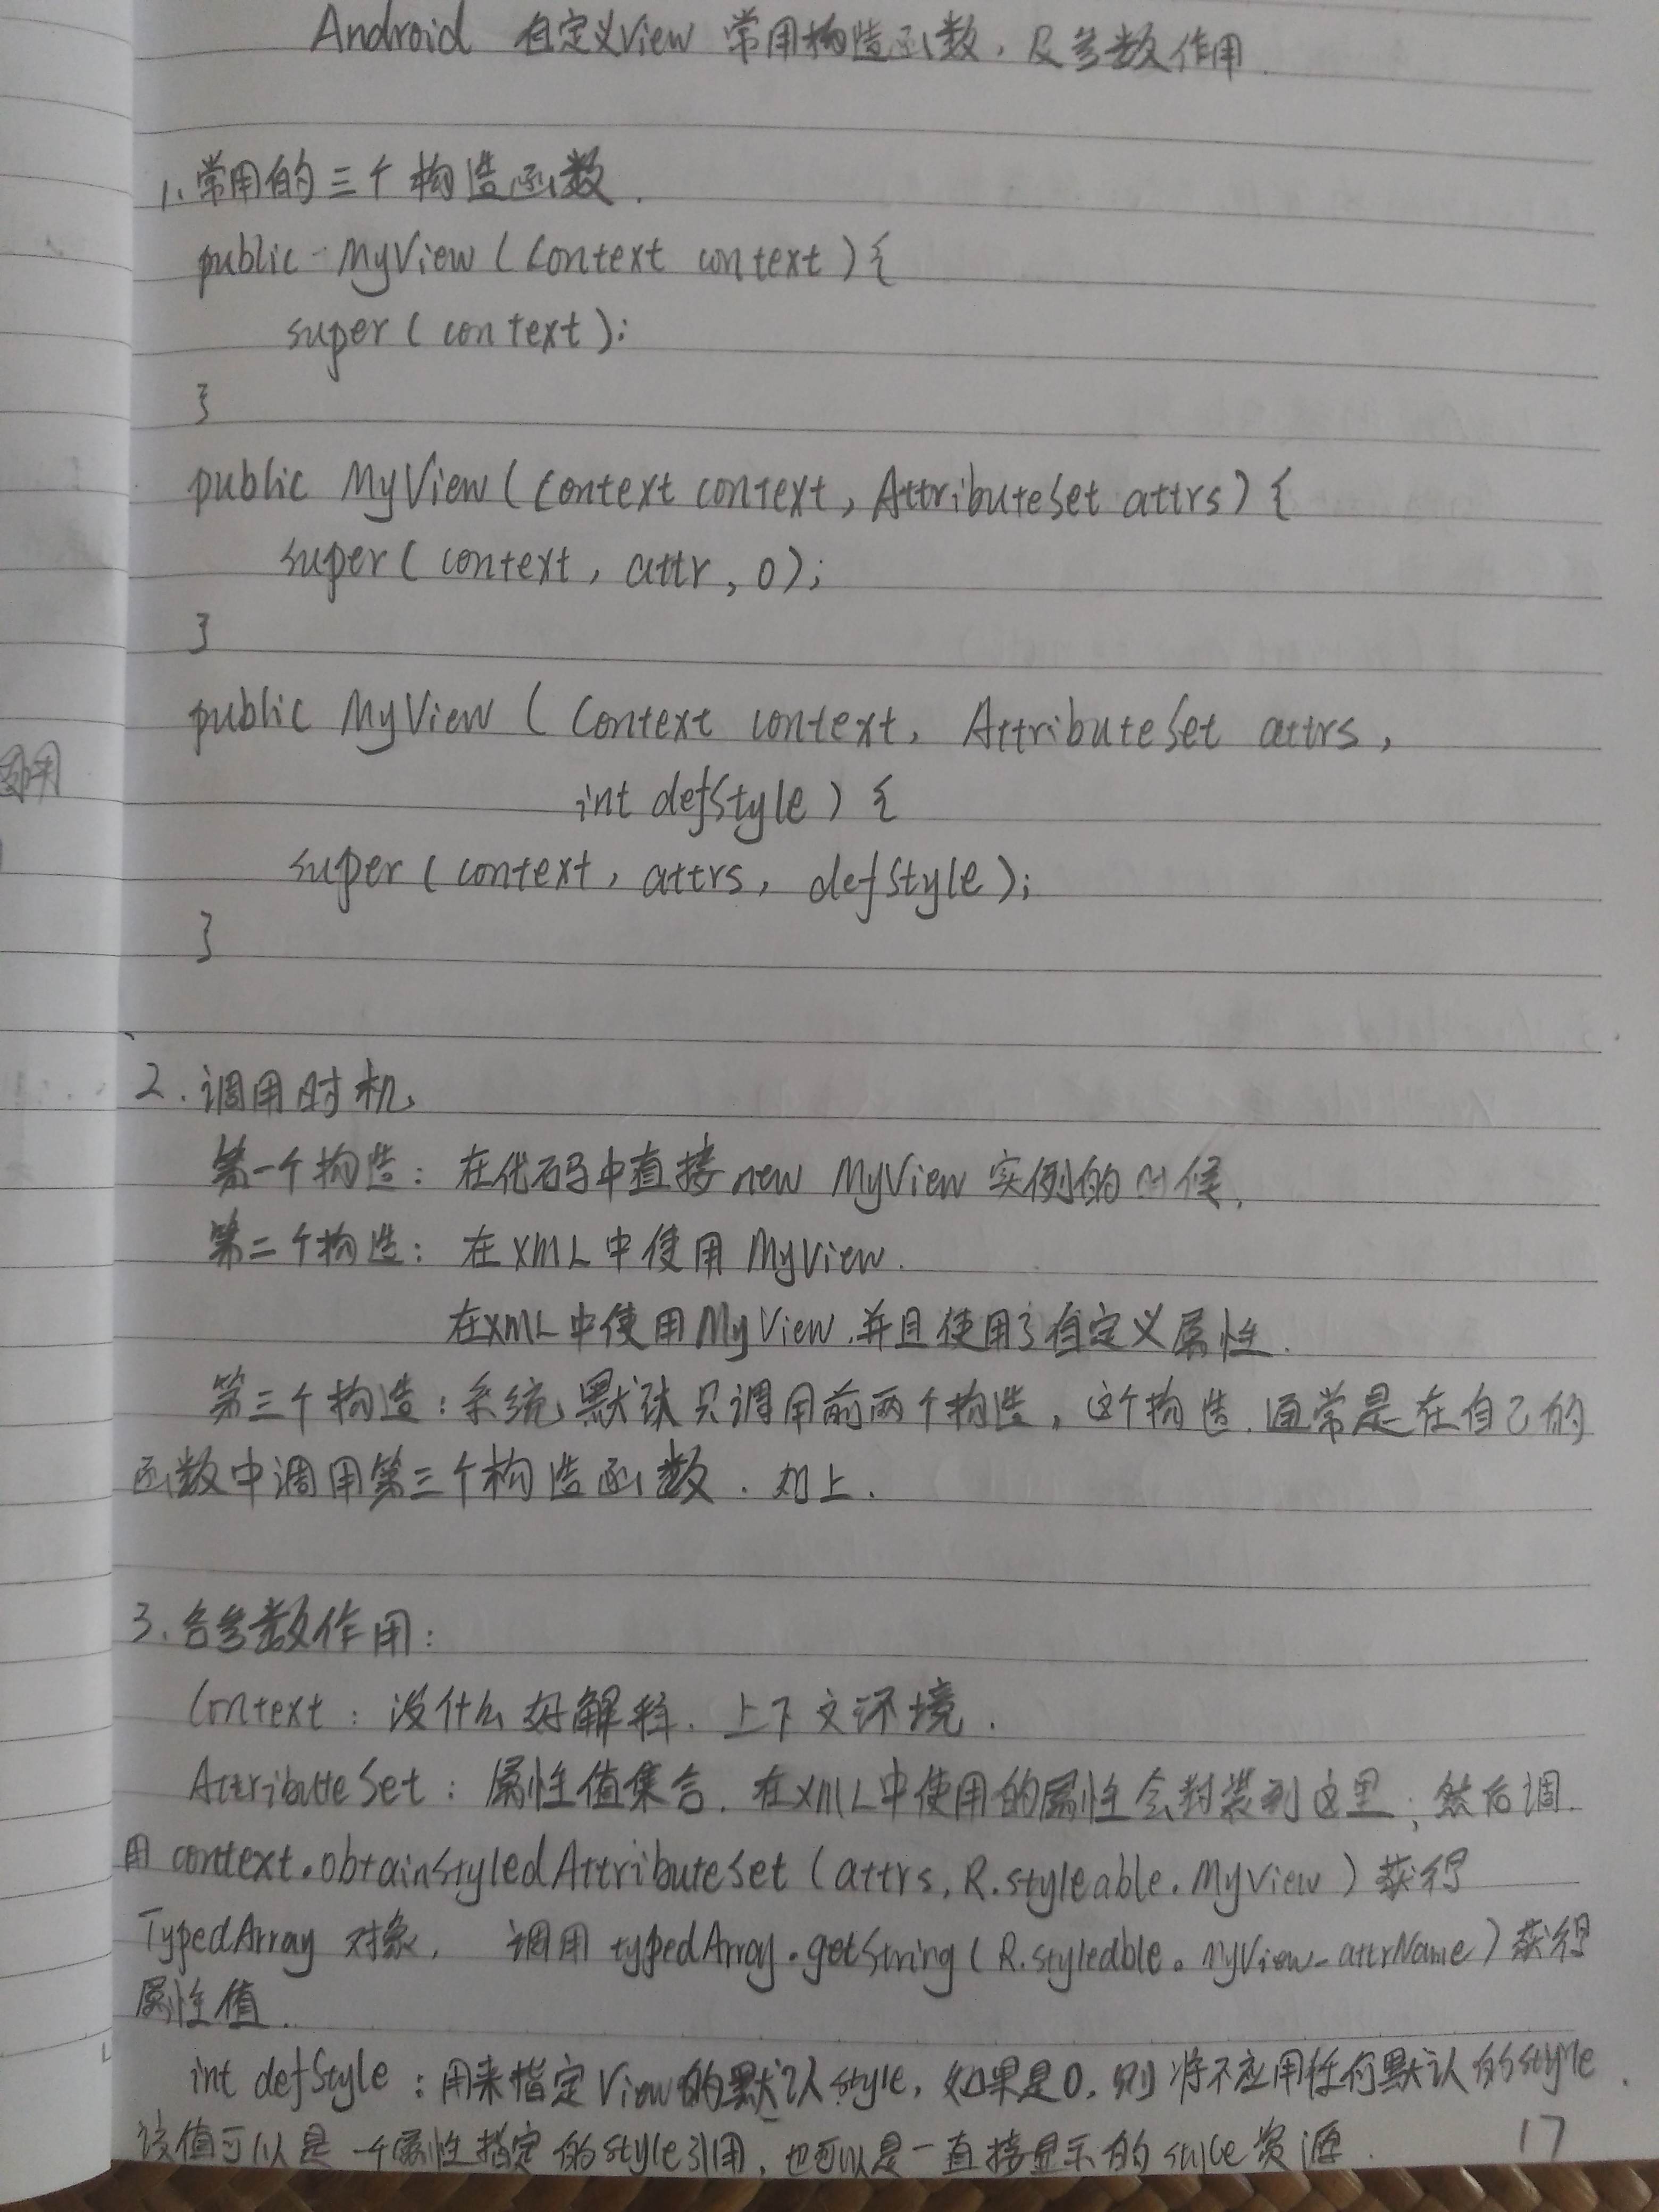 Android 自定义View 常用构造函数,及参数作用.
1、常用的三个构造函数.
public MyView (Context context) {
super ( context );
}
public MyView ( Context context , AttributeSet attrs ) {
super ( context , attr , 0 );
}
public MyView ( Context context , AttributeSet attrs ,
int defStyle ) {
super ( context , attrs , defStyle );
}
2 . 调用时机
第一个构造: 在代码中直接new MyView 实例的时候.
第二个构造: 在XML中使用 MyView.
在XML中使用MyView,并且使用了自定义属性.
第三个构造:系统默认只调用前两个构造,这个构造,通常是在自己的
函数中调用第三个构造函数.如上.
3、各参数作用:
Context : 没什么好解释.上下文环境.
AttributeSet : 属性值集合.在XML中使用的属性会封装到这里,然后调
用 context.obtainStyledAttributeSet ( attrs, R.styleable.MyView ) 获得
TypedArray 对象. 调用 typedArray.getString ( R.styleable.MyView_attrName ) 获得
属性值.
int defStyle : 用来指定View的默认style,如果是0,则将不应用任何默认的style.
该值可以是一个属性指定的style引用,也可以是一直接显示的style资源.
17